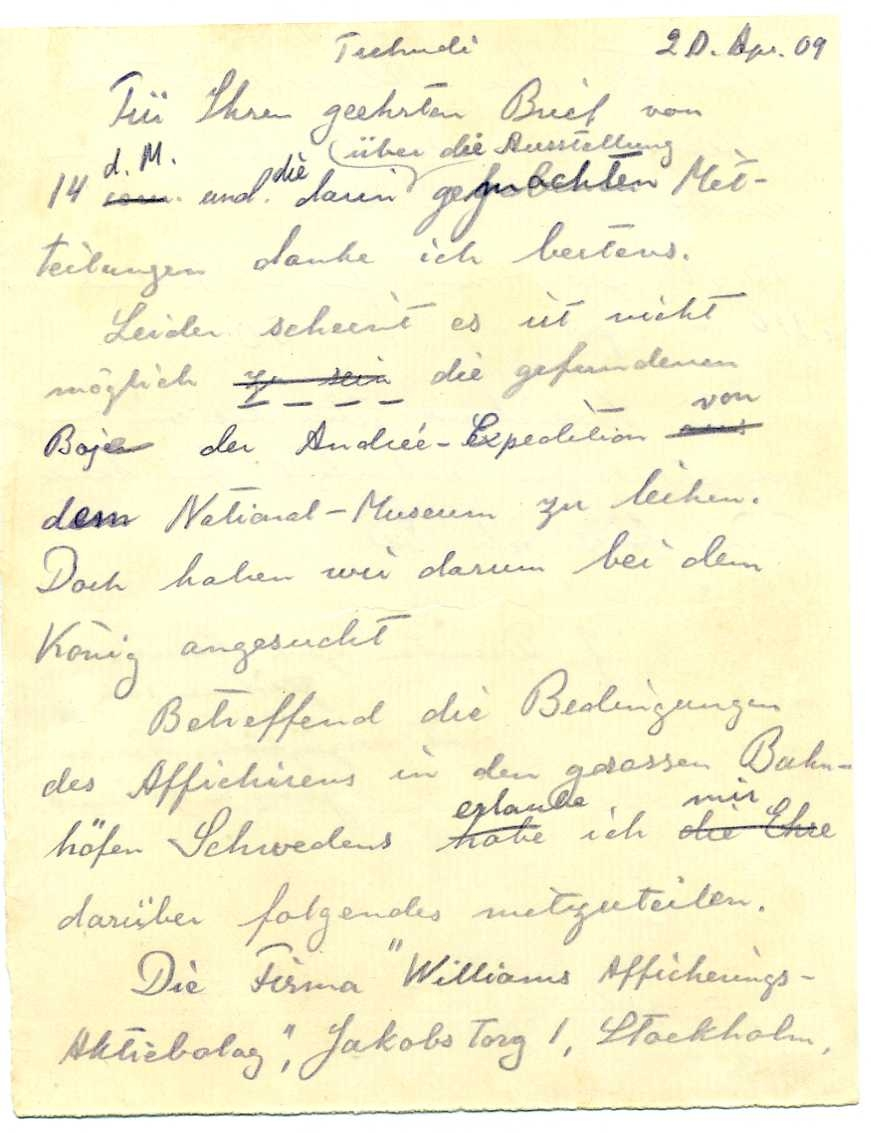 Tschudi 20. Apr. 09
Für Ihren geehrten Brief von
d. M. die (über die Ausstellung
14 vom. und darin gemachten Mit-
teilungen danke ich bestens.
Leider scheint es ist nicht
möglich zu sein die gefundenen
von
Bojen der Andrée-Expedition aus
dem National-Museum zu leihen.
Doch haben wir darum bei dem
König angesucht
Betreffend die Bedingungen
des Affichirens in den grossen Bahn-
erlaube mir
höfen Schwedens habe ich die Ehre
darüber folgendes mitzuteilen.
Die Firma "Williams Afficherings-
Aktiebolag", Jakobs Torg 1, Stockholm,